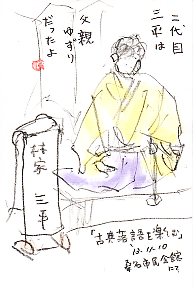 二代目
三平は
父親
ゆずり
だったよ
林家
三平
「古典落語を楽しむ」
'13.11.10
桑名市民会館
にて